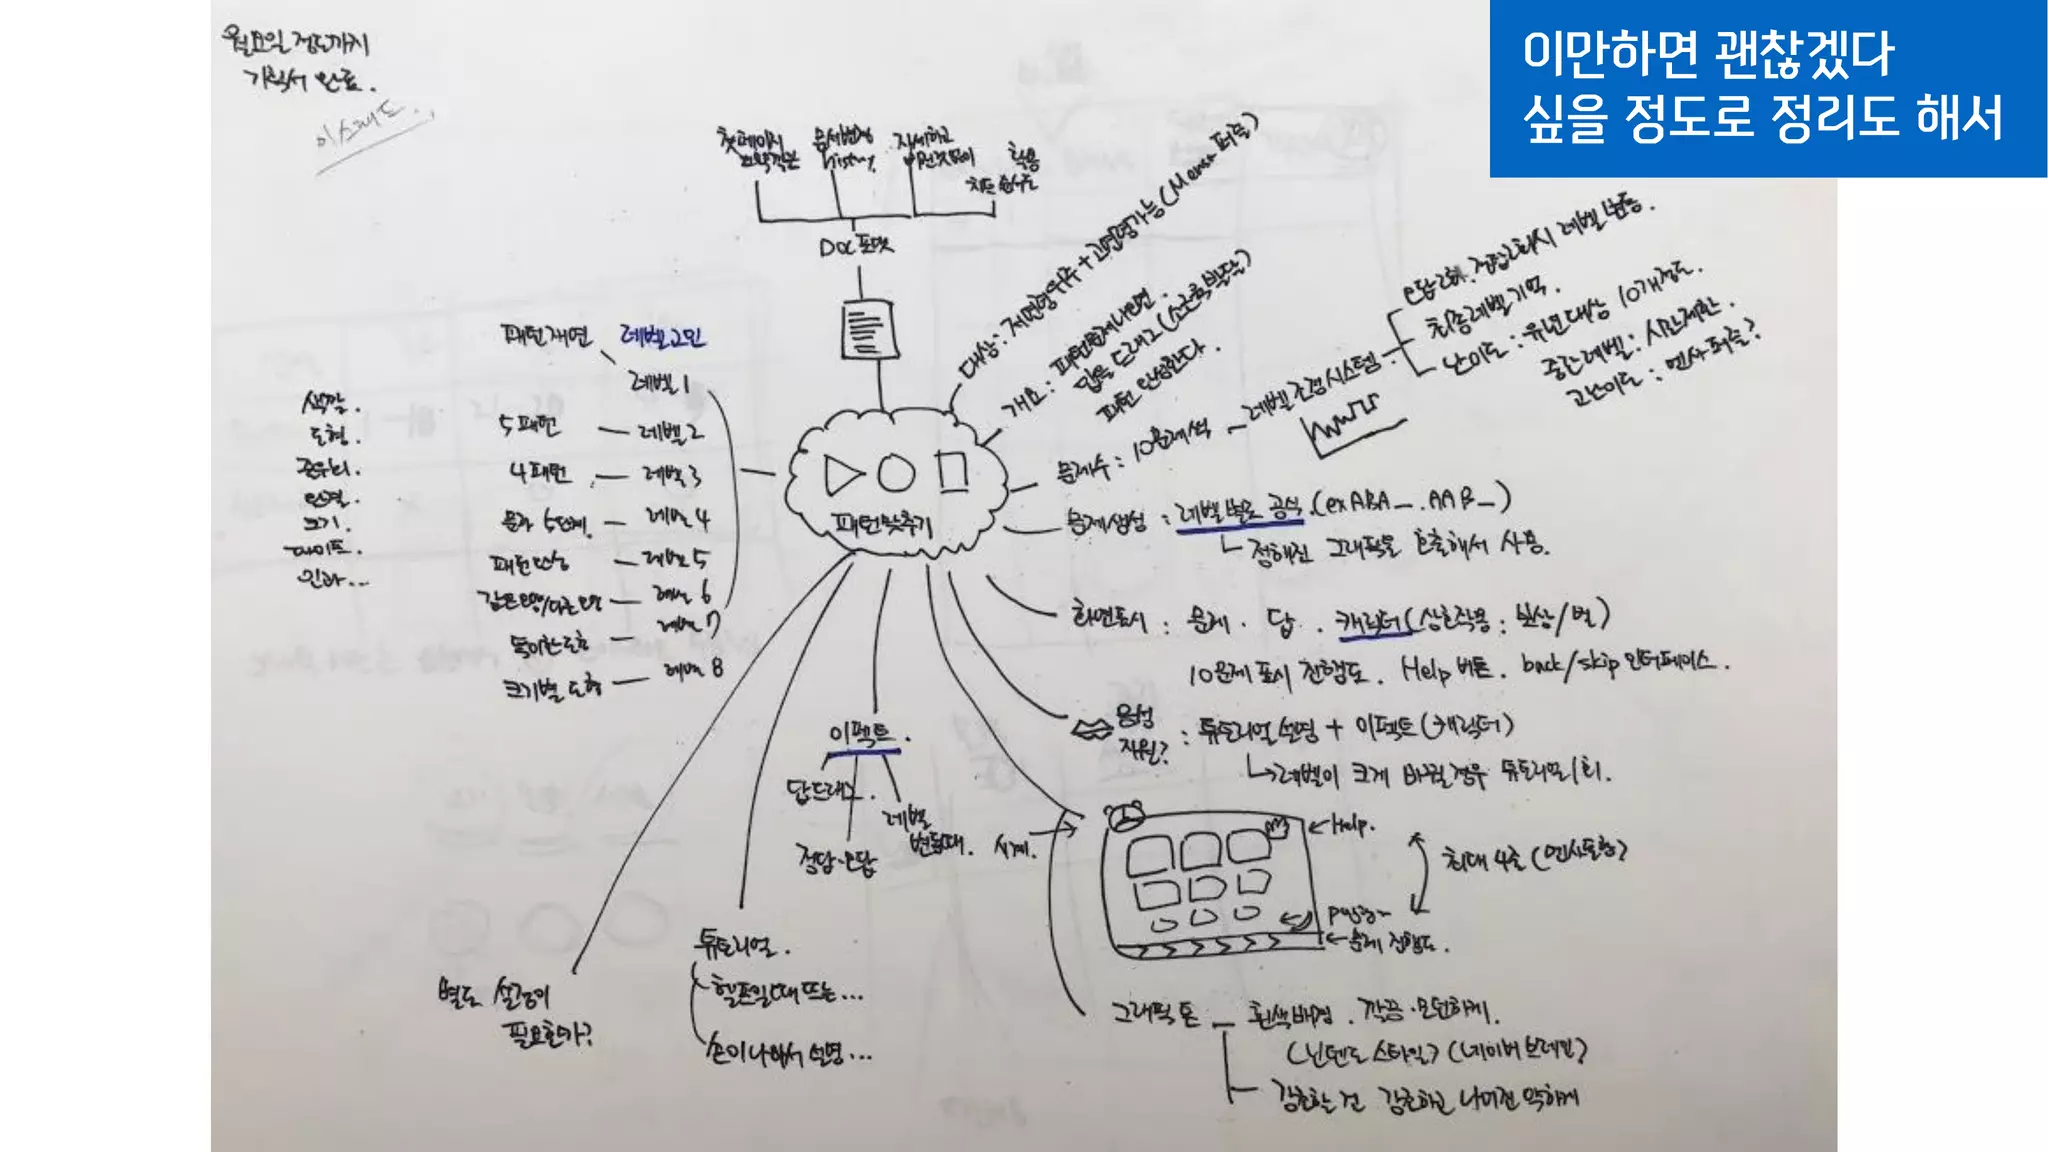 이만하면 괜찮겠다
싶을 정도로 정리도 해서
월요일 정도까지
기획서 완료.
첫페이지
문서변경
history.
자세하고
Doc 포맷
대상 : 저연령위주 + 고연령가능 (Mensa 퍼즐)
개요 : 패턴문제나오면
답을 드래그 (소근육발달)
패턴 완성한다.
문제수 : 10문제씩 - 레벨조정시스템
오답2회. 정답2회시 레벨변동.
최종레벨기억.
난이도 : 유년대상 10개정도.
중간레벨 : 시간제한.
고난이도 : 멘사퍼즐?
문제생성 : 레벨별로 공식.(ex ABA_. AAB_)
정해진 그래픽을 호출해서 사용.
화면표시 : 문제 . 답 . 캐릭터 (상호작용 : 보상/벌)
10문제 표시 진행도. Help 버튼. back/skip 인터페이스.
음성
지원?
: 튜토리얼 설명 + 이펙트 (캐릭터)
레벨이 크게 바뀔경우 튜토리얼 1회.
패턴 재연
레벨고민
레벨 1
5패턴 — 레벨 2
4패턴 — 레벨 3
문자 5단계. — 레벨 4
레벨 5
레벨 6
레벨 7
크기별 도형 — 레벨 8
색깔.
도형.
크기.
패턴맞추기
이펙트.
답드래그.
정답·오답
레벨
변동때.
시계.
Help.
최대 4줄 (멘사포함)
문제 진행도.
튜토리얼.
헬프일때 뜨는...
손이 나와서 설명...
별도 설정이
필요한가?
그래픽 톤 — 흰색배경. 깔끔·모던하게.
(닌텐도 스타일?) (네이버 브레인?)
강조할건 강조하고 나머진 약하게